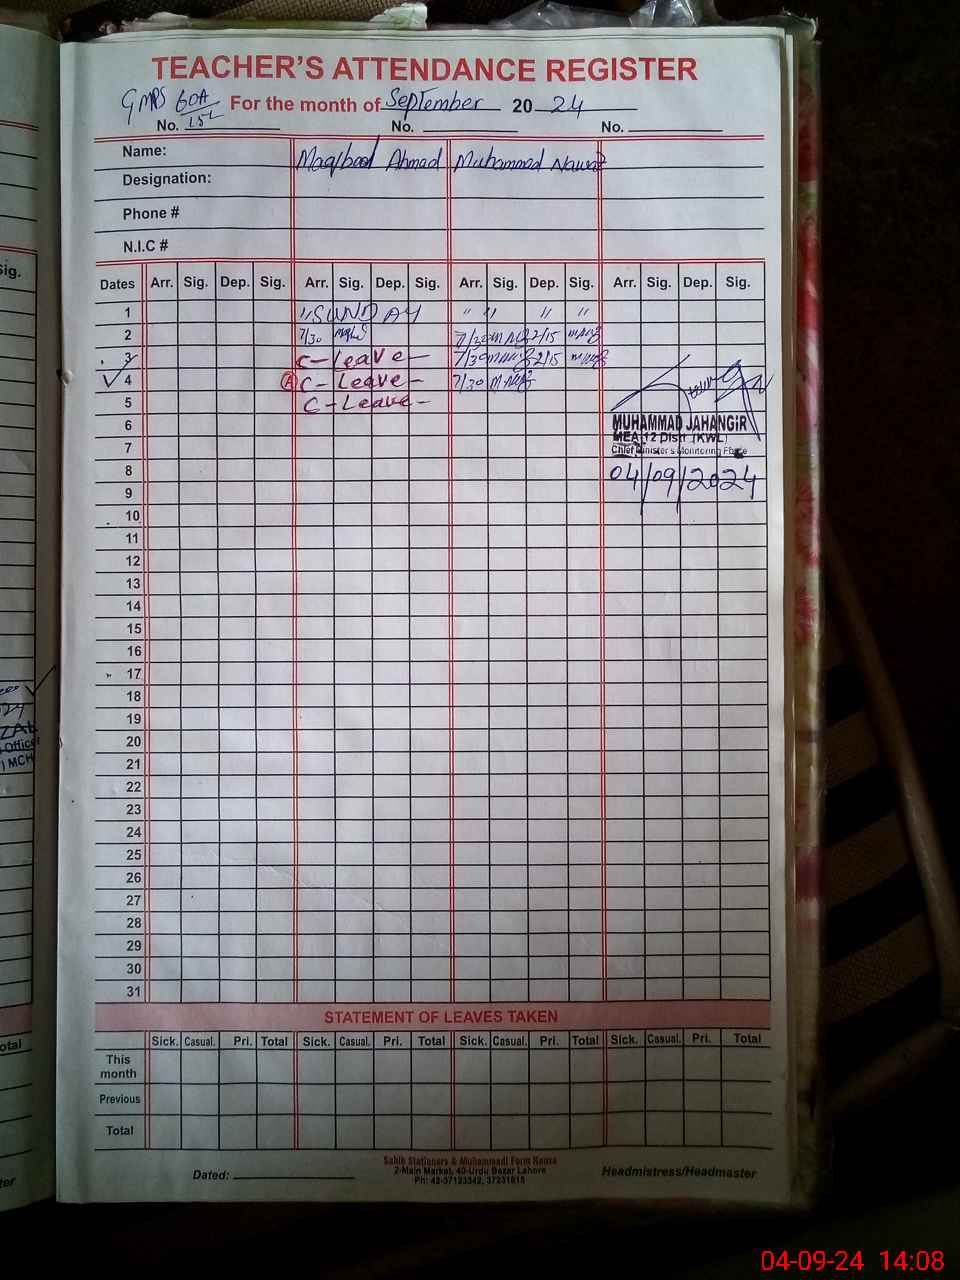 TEACHER'S ATTENDANCE REGISTER
GMPS 60A/15L For the month of September 2024
No. No. No.
Name: Maqbool Ahmad Muhammad Nawaz
Designation:
Phone #
N.I.C #
Dates Arr. Sig. Dep. Sig. Arr. Sig. Dep. Sig. Arr. Sig. Dep. Sig. Arr. Sig. Dep. Sig.
1 "SUNDAY " " " "
2 7/30 7/30 2/15
3 C-Leave- 7/30 2/15
4 A C-Leave- 7/30
5 C-Leave-
6 MUHAMMAD JAHANGIR
MEA 12 Distt (KWL)
7 Chief Minister's Monitoring Force
8 04/09/2024
9
10
11
12
13
14
15
16
17
18
19
20
21
22
23
24
25
26
27
28
29
30
31
STATEMENT OF LEAVES TAKEN
Sick. Casual. Pri. Total Sick. Casual. Pri. Total Sick. Casual. Pri. Total Sick. Casual. Pri. Total
This month
Previous
Total
Dated:
Sahib Stationers & Muhammadi Form House
2-Main Market, 40-Urdu Bazar Lahore
Ph: 42-37123342, 37231815
Headmistress/Headmaster
Sig.
Office
MCH
04-09-24 14:08